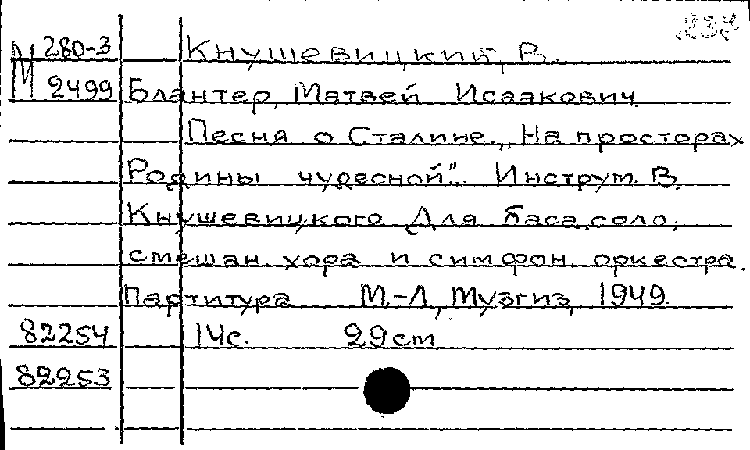 237
М 280-3 Кнушевицкий, В.
2499 Блантер, Матвей Исаакович
Песня о Сталине. „На просторах
Родины чудесной". Инструм. В.
Кнушевицкого. Для баса соло,
смешан. хора и симфон. оркестра.
Партитура М.-Л, Музгиз, 1949.
82254 14с. 29cm
82253